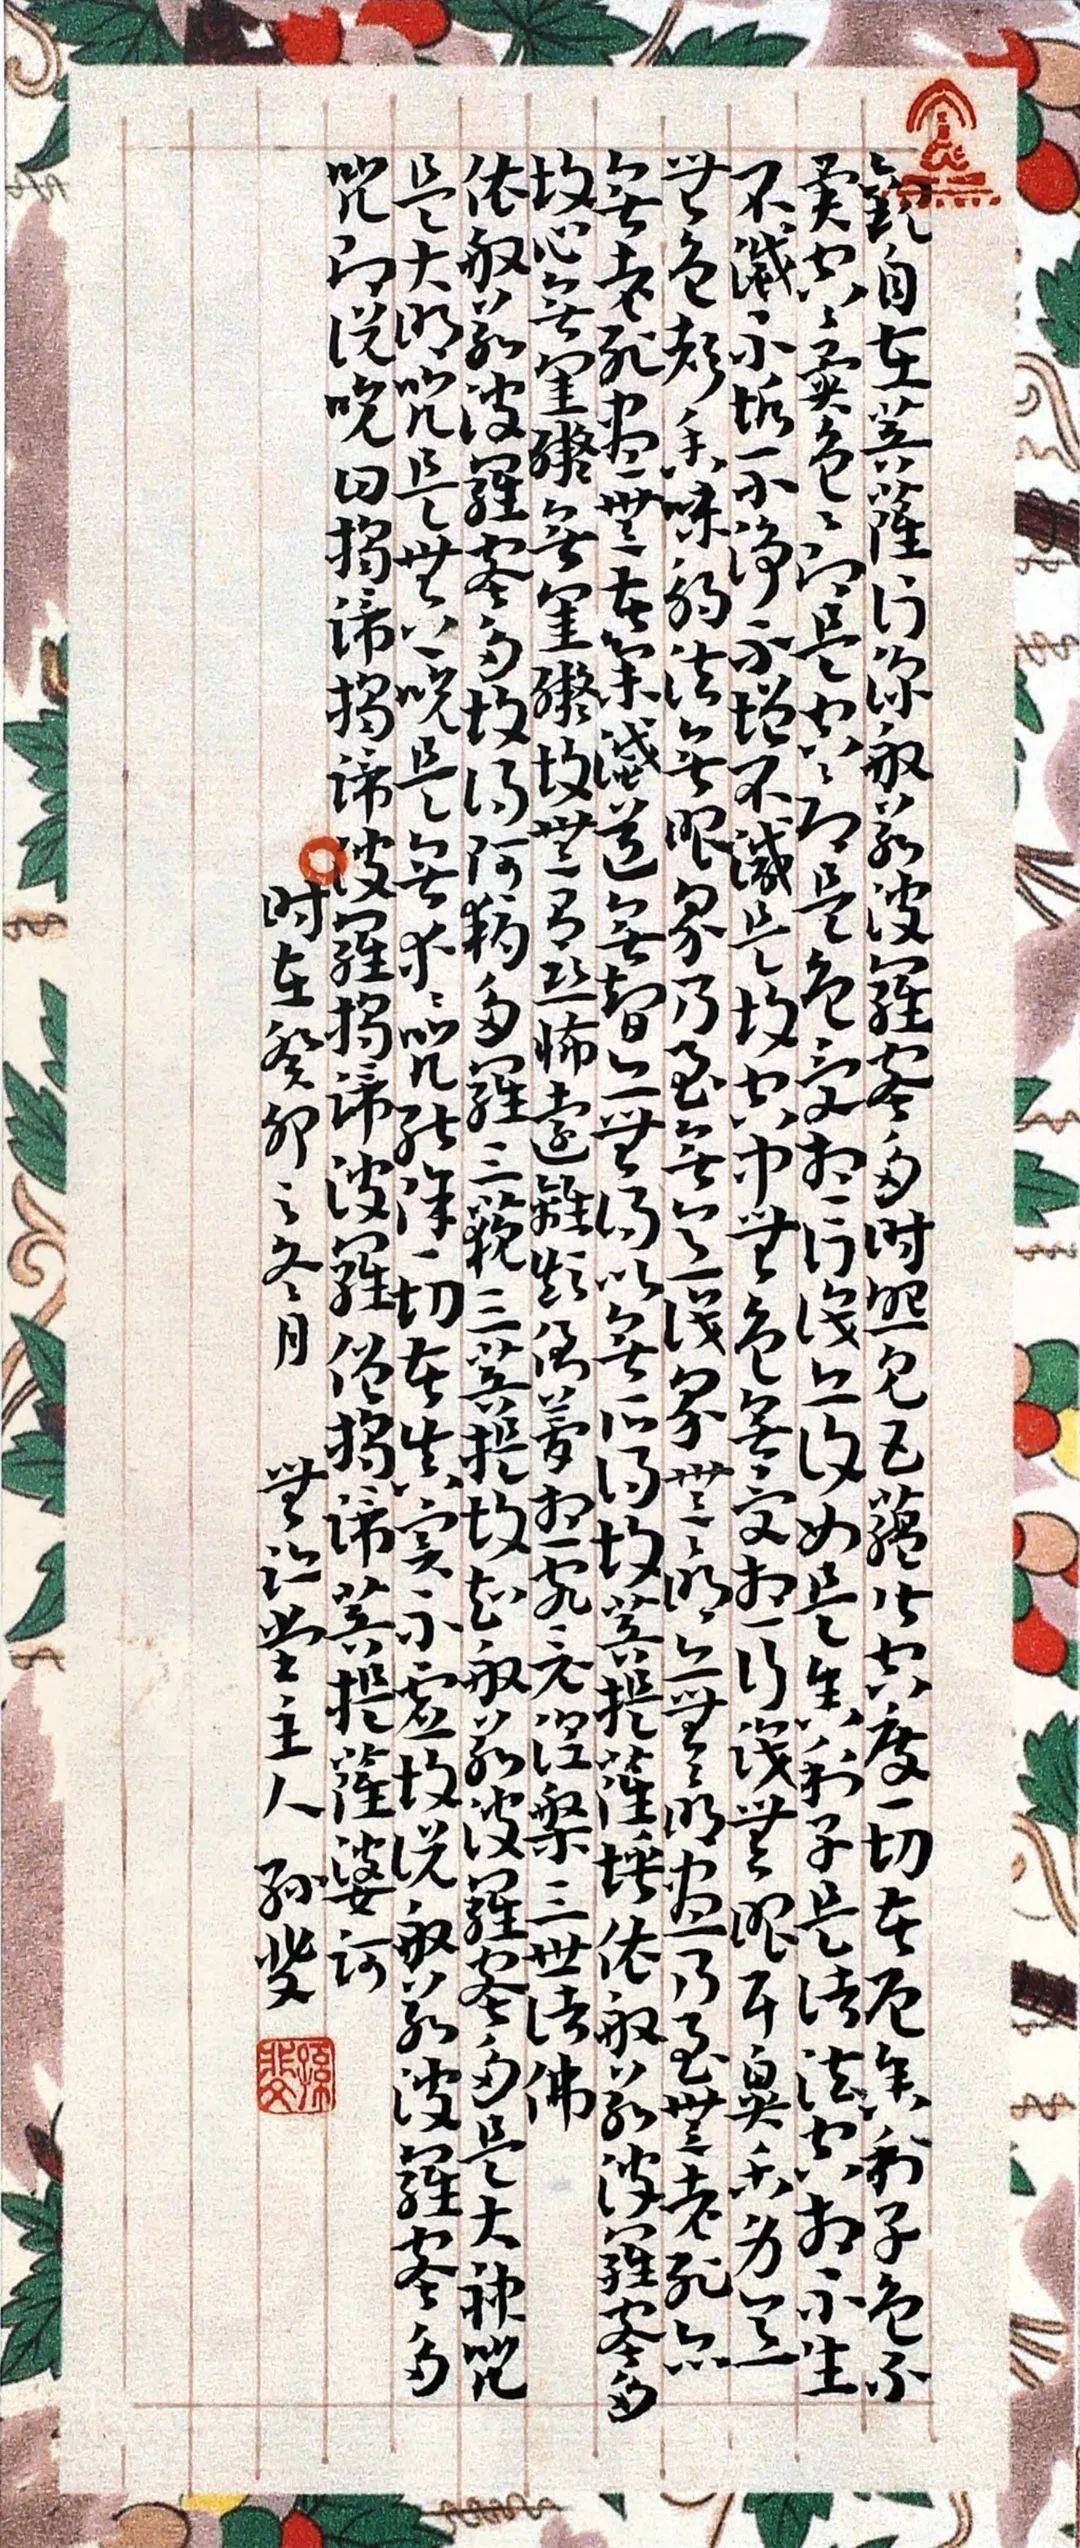 觀自在菩薩行深般若波羅蜜多时照見五蘊皆空度一切苦厄舍利子色不
異空〻不異色〻即是空〻即是色受想行識亦復如是舍利子是諸法空相不生
不滅不垢不淨不增不減是故空中無色無受想行識無眼耳鼻舌身意
無色聲香味觸法無眼界乃至無意識界無〻明亦無〻明盡乃至無老死亦
無老死盡無苦集滅道無智亦無得以無所得故菩提薩埵依般若波羅蜜多
故心無罣礙無罣礙故無有恐怖遠離顛倒夢想究竟涅槃三世諸佛
依般若波羅蜜多故得阿耨多羅三藐三菩提故知般若波羅蜜多是大神咒
是大明咒是無上咒是無等〻咒能除一切苦真實不虛故說般若波羅蜜多
咒即說咒曰揭諦揭諦波羅揭諦波羅僧揭諦菩提薩婆訶
时在癸卯之冬月 無堂主人 孫斐
孫斐